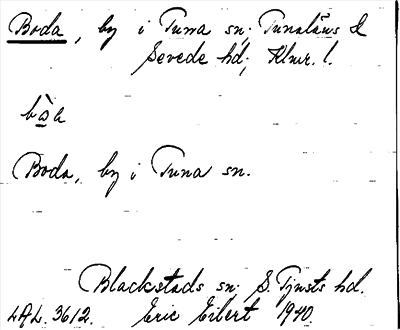 Boda, by i Tuna sn; Tunaläns &
Sevede hd; Klmr. l.
Boda, by i Tuna sn.
Blackstads sn. S. Tjusts hd.
LAL. 3612. Eric Eilert 1940.